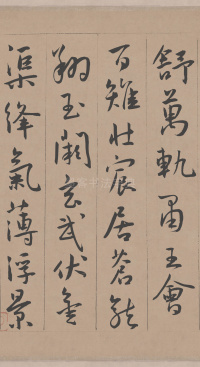 舒萬軌用王會
百雉壯宸居蒼龍
翔玉闕玄武伏金
渠絳氣薄浮景